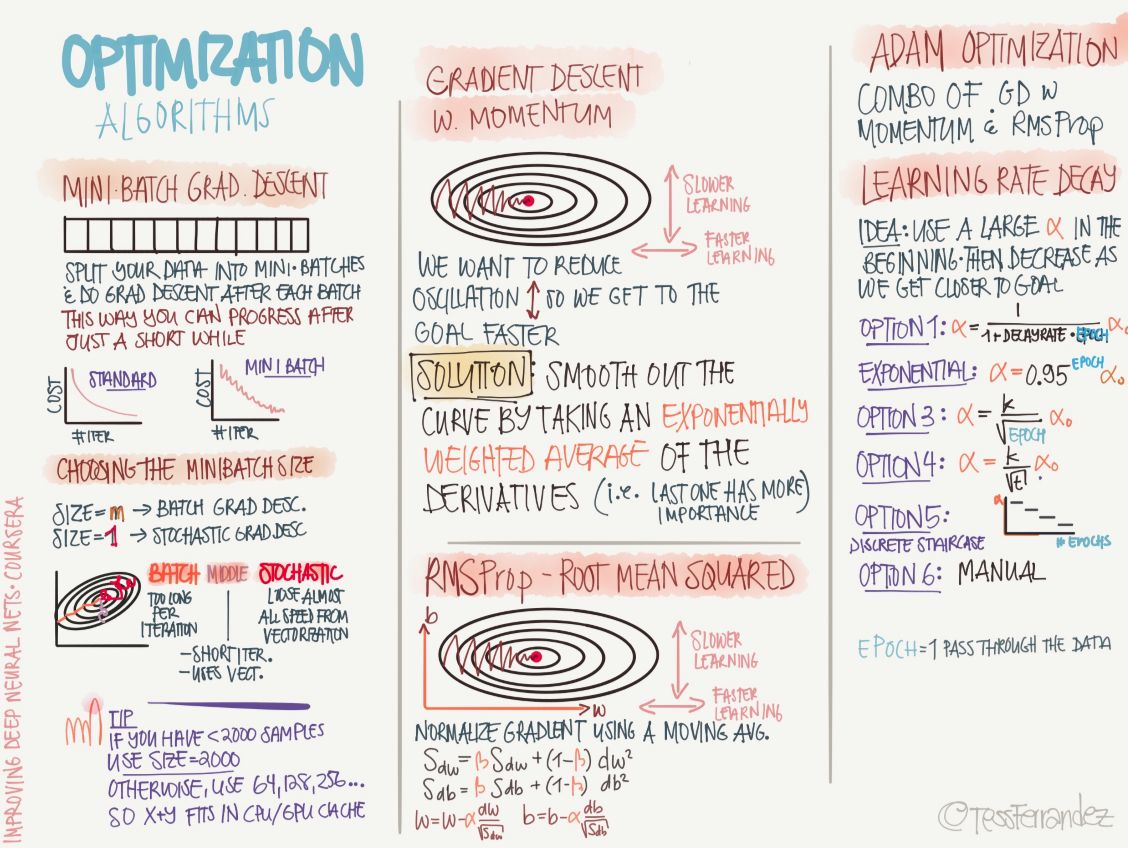 OPTIMIZATION
ALGORITHMS
MINI·BATCH GRAD. DESCENT
SPLIT YOUR DATA INTO MINI·BATCHES
& DO GRAD DESCENT AFTER EACH BATCH
THIS WAY YOU CAN PROGRESS AFTER
JUST A SHORT WHILE
COST
STANDARD
# ITER
COST
MINI BATCH
# ITER
CHOOSING THE MINIBATCH SIZE
SIZE=m → BATCH GRAD DESC.
SIZE=1 → STOCHASTIC GRAD.DESC
BATCH MIDDLE STOCHASTIC
TOO LONG
PER
ITERATION
LOOSE ALMOST
ALL SPEED FROM
VECTORIZATION
-SHORT ITER.
-USES VECT.
TIP
IF YOU HAVE <2000 SAMPLES
USE SIZE=2000
OTHERWISE, USE 64,128,256...
SO X+Y FITS IN CPU/GPU CACHE
IMPROVING DEEP NEURAL NETS·COURSERA
GRADIENT DESCENT
W. MOMENTUM
SLOWER
LEARNING
FASTER
LEARNING
WE WANT TO REDUCE
OSCILLATION ↕ SO WE GET TO THE
GOAL FASTER
SOLUTION: SMOOTH OUT THE
CURVE BY TAKING AN EXPONENTIALLY
WEIGHTED AVERAGE OF THE
DERIVATIVES (i.e. LAST ONE HAS MORE
IMPORTANCE)
RMSProp - ROOT MEAN SQUARED
b
w
SLOWER
LEARNING
FASTER
LEARNING
NORMALIZE GRADIENT USING A MOVING AVG.
Sdw = β Sdw + (1-β) dw²
Sdb = β Sdb + (1-β) db²
w=w-α dw/√Sdw b=b-α db/√Sdb
ADAM OPTIMIZATION
COMBO OF GD W
MOMENTUM & RMSProp
LEARNING RATE DECAY
IDEA: USE A LARGE α IN THE
BEGINNING·THEN DECREASE AS
WE GET CLOSER TO GOAL
OPTION 1: α = 1/(1+DECAYRATE·EPOCH) α₀
EXPONENTIAL: α = 0.95^EPOCH α₀
OPTION 3: α = k/√EPOCH α₀
OPTION 4: α = k/√t α₀
OPTION 5:
DISCRETE STAIRCASE
α
# EPOCHS
OPTION 6: MANUAL
EPOCH = 1 PASS THROUGH THE DATA
©TessFerrandez